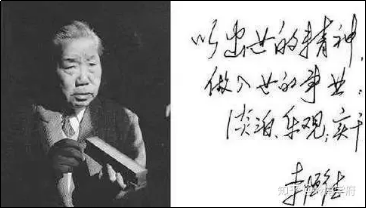 以出世的精神,
做入世的事业;
淡泊、乐观、实干
李恒德
知乎
学府